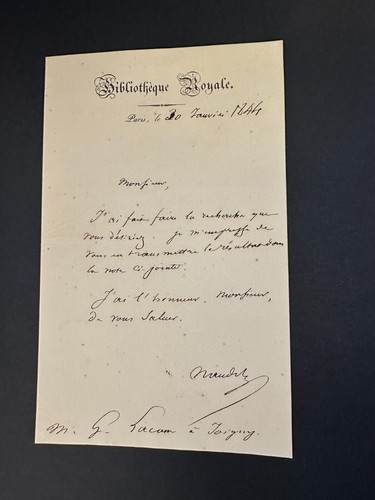 Bibliothèque Royale.
Paris, le 30 Janvier 1844
Monsieur,
J'ai fait faire la recherche que
vous désiriez. je m'empresse de
vous en transmettre le résultat dans
la note ci jointe.
J'ai l'honneur, Monsieur,
de vous saluer.
M. G. à Joigny.